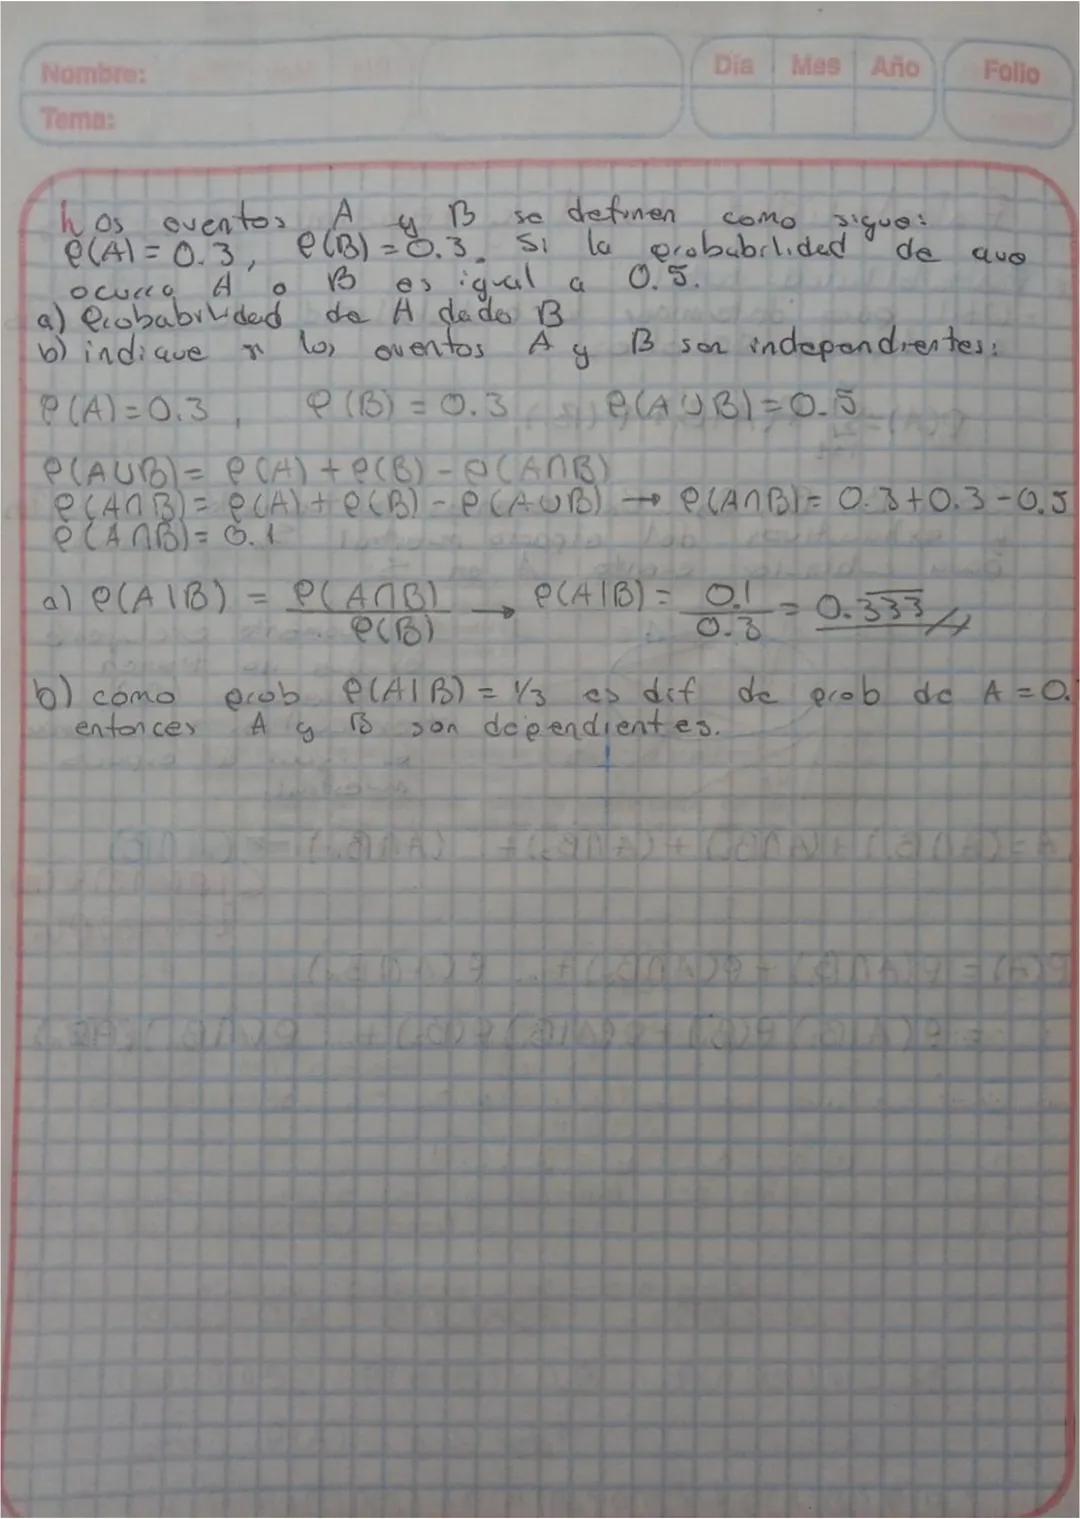 Nombre:
Tema:
Día Mes Año
Folio
Los eventos A y B se definen como sigue:
P(A) = 0.3, P(B) = 0.3. Si la probabilidad de que
ocurra A o B es igual a 0.5.
a) Probabilidad de A dado B
b) indique si los eventos A y B son independientes:
P(A) = 0.3, P(B) = 0.3 P(A∪B) = 0.5
P(A∪B) = P(A) + P(B) - P(A∩B)
P(A∩B) = P(A) + P(B) - P(A∪B) → P(A∩B) = 0.3 + 0.3 - 0.5
P(A∩B) = 0.1
a) P(A|B) = P(A∩B) / P(B) → P(A|B) = 0.1 / 0.3 = 0.333
b) como prob P(A|B) = 1/3 es dif de prob de A = 0.
entonces A y B son dependientes.